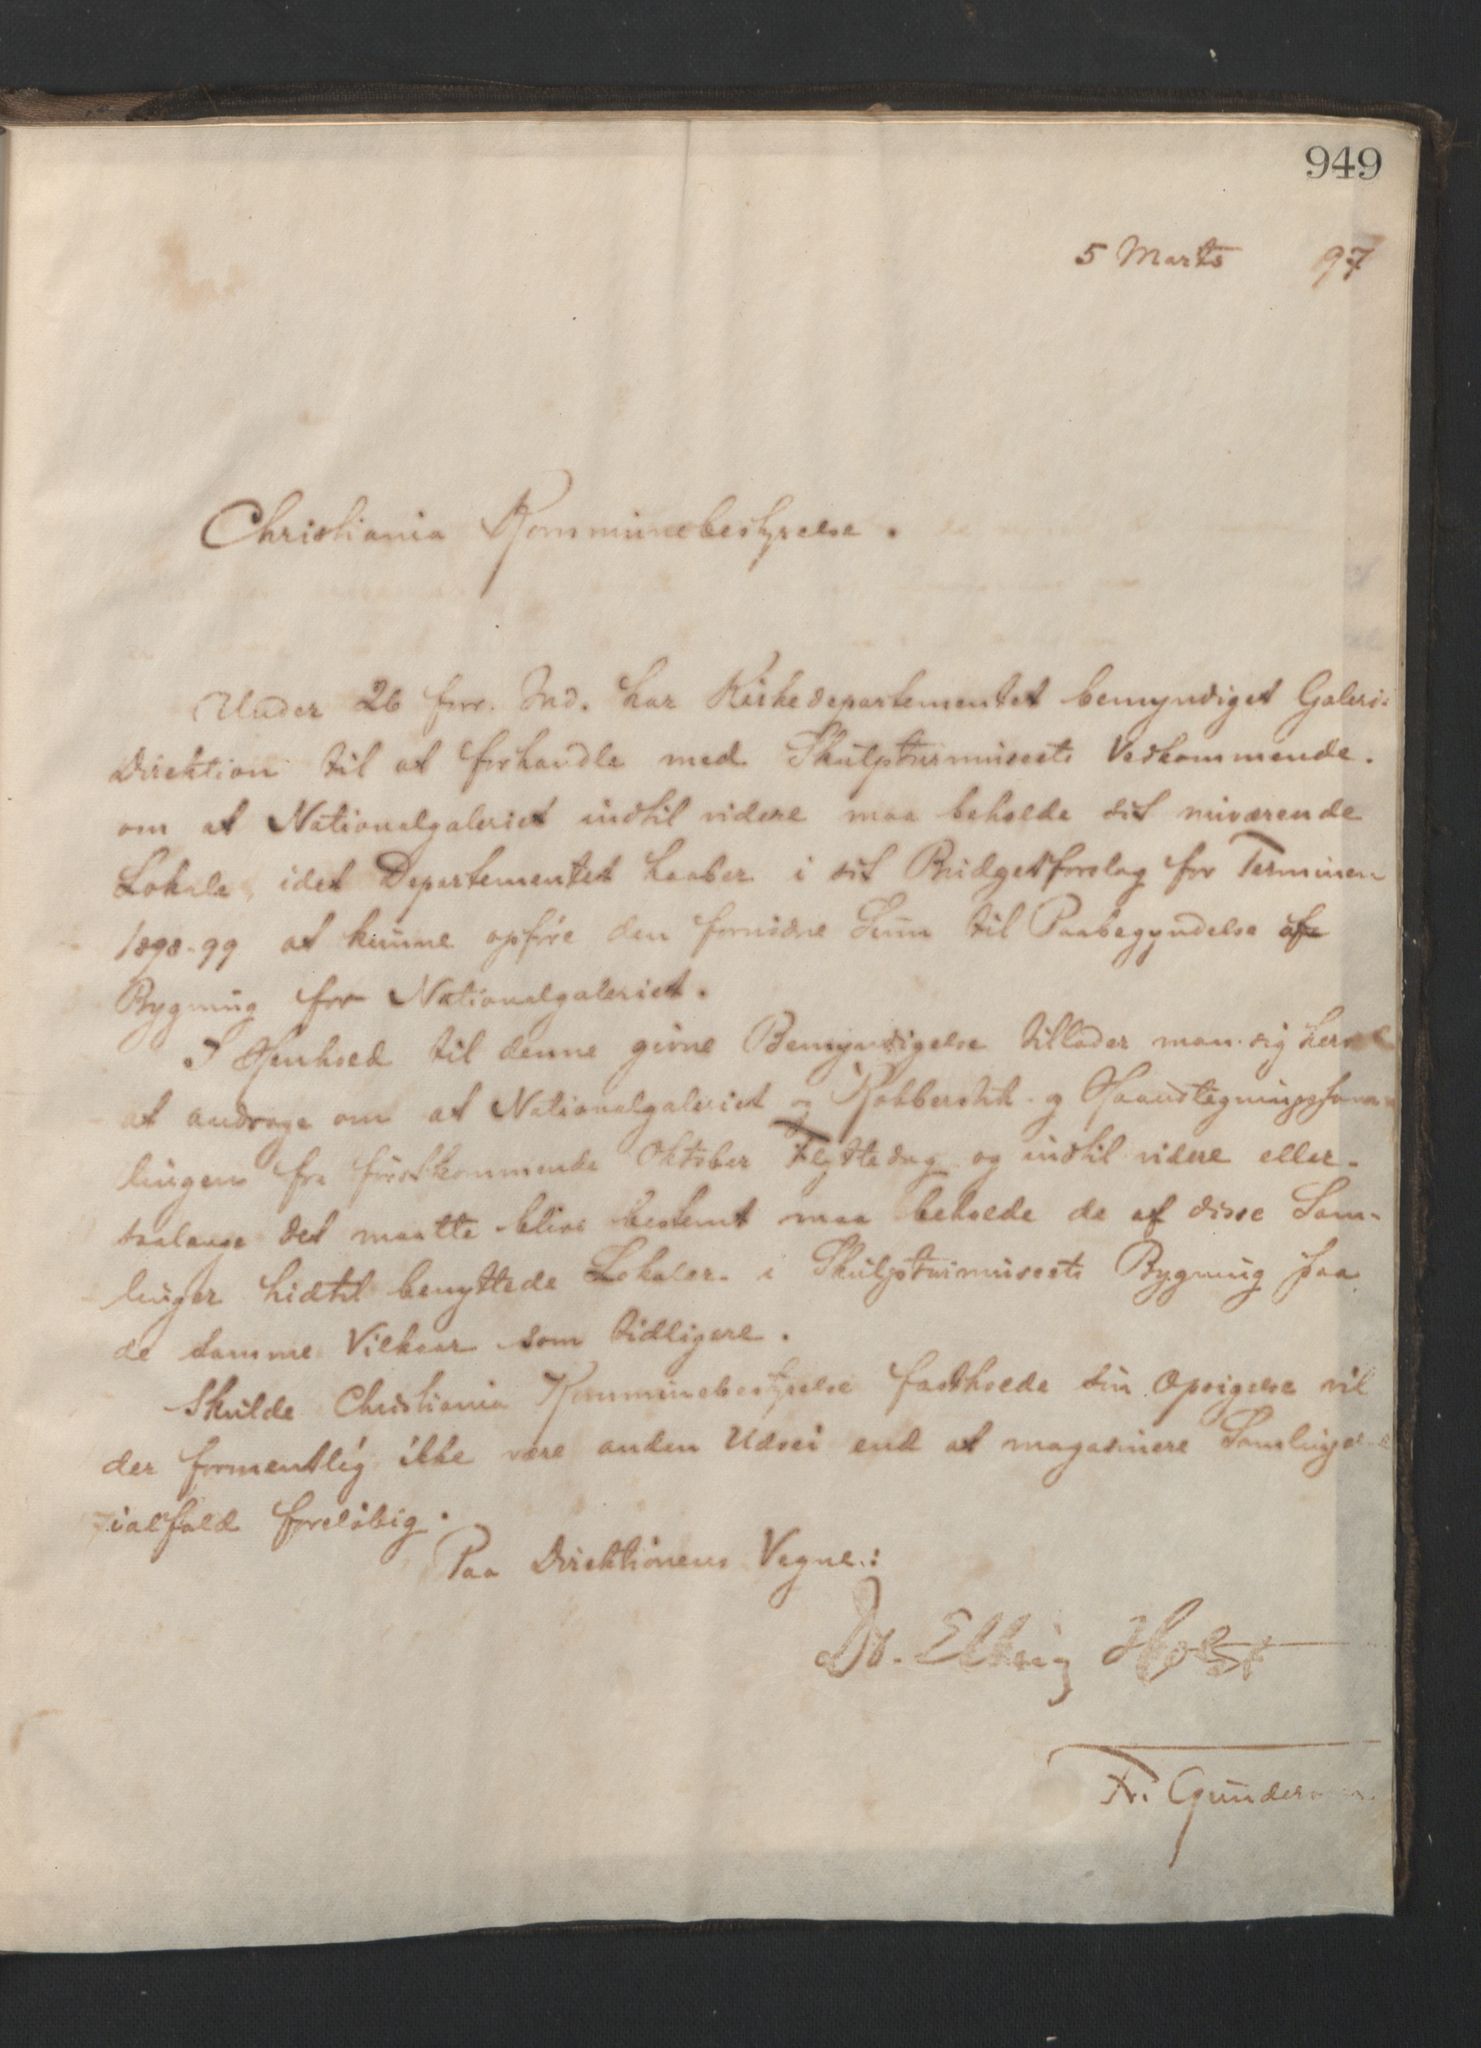 949
5 Marts 97
Christiania Kommunebestyrelse.
Under 26 forr. Md. har Kirkedepartementet bemyndiget Galeri-
direktion til at forhandle med Skulpturmuseets Vedkommende.
om at Nationalgaleriet indtil videre maa beholde sit nuværende
Lokale, idet Departementet haaber i sit Budgetforslag for Terminen
1898-99 at kunne opføre den fornødne Sum til Paabegyndelse af
Bygning for Nationalgaleriet.
I Henhold til denne givne Bemyndigelse tillader man sig herved
at andrage om at Nationalgaleriet og Kobberstik- og Haandtegningssam-
lingen fra førstkommende Oktober Flyttedag og indtil videre eller
saalænge det maatte blive bestemt maa beholde de af disse Sam-
linger hidtil benyttede Lokaler i Skulpturmuseets Bygning paa
de samme Vilkaar som tidligere.
Skulde Christiania Kommunebestyrelse fastholde sin Opsigelse vil
der formentlig ikke være anden Udvei end at magasinere Samlingerne
ialfald foreløbig.
Paa Direktionens Vegne:
Dr. Elling Holst
Fr. Gundersen